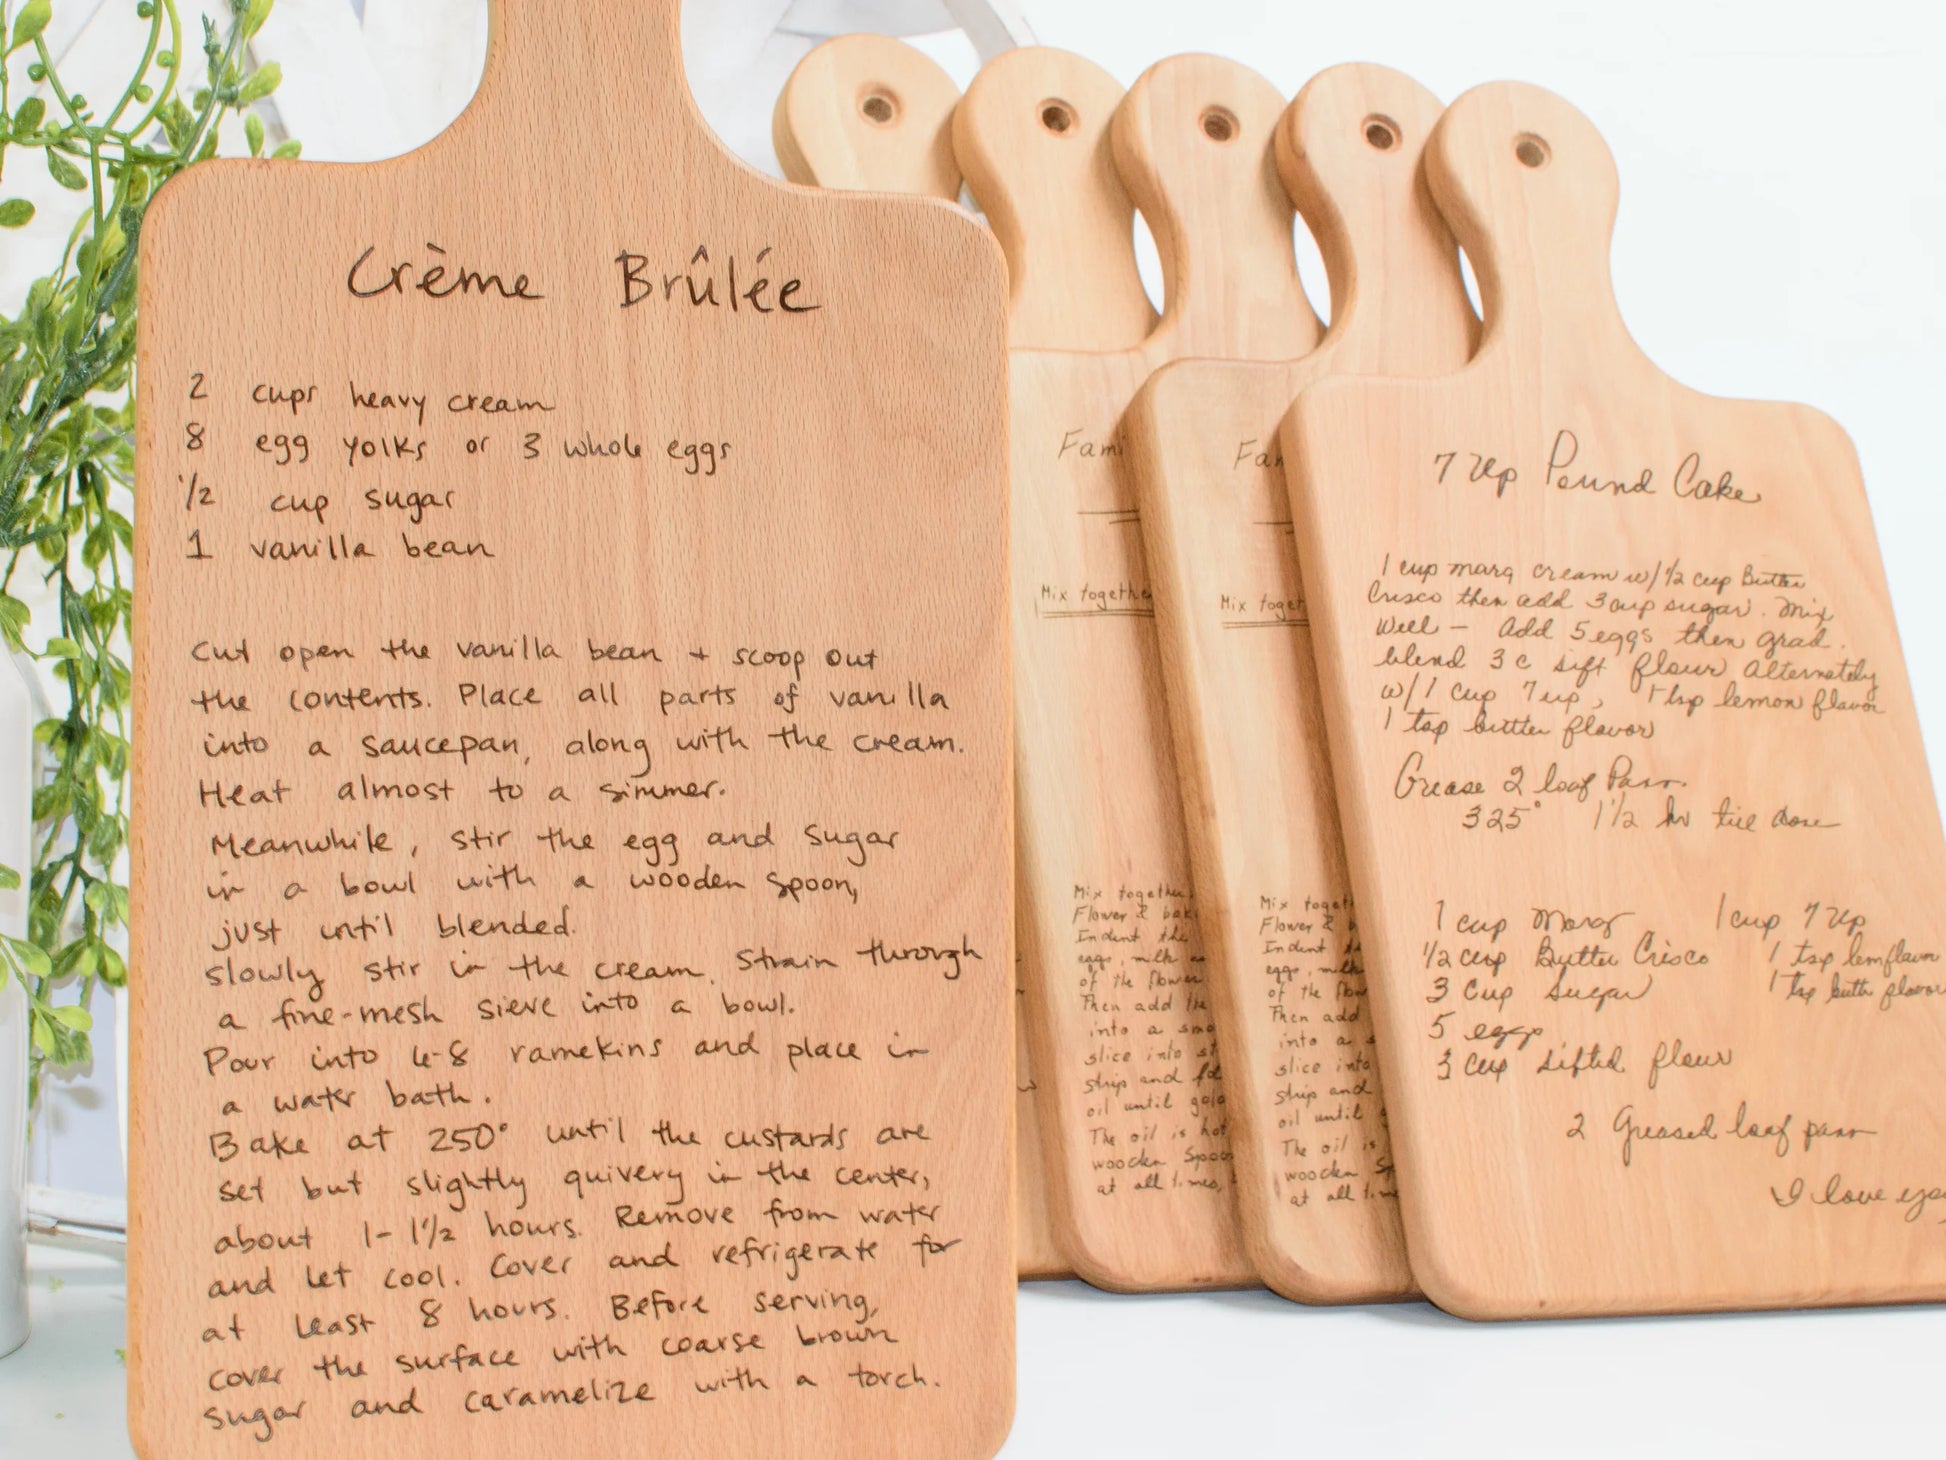 Crème Brûlée
2 cups heavy cream
8 egg yolks or 3 whole eggs
1/2 cup sugar
1 vanilla bean
Cut open the vanilla bean + scoop out
the contents. Place all parts of vanilla
into a saucepan, along with the cream.
Heat almost to a simmer.
Meanwhile, stir the egg and sugar
in a bowl with a wooden spoon,
just until blended.
slowly stir in the cream. Strain through
a fine-mesh sieve into a bowl.
Pour into 6-8 ramekins and place in
a water bath.
Bake at 250° until the custards are
set but slightly quivery in the center,
about 1-1 1/2 hours. Remove from water
and let cool. Cover and refrigerate for
at least 8 hours. Before serving,
cover the surface with coarse brown
sugar and caramelize with a torch.
Fami
Mix togethe
Mix togethe
Flower & bak
Indent the
eggs, milk
of the flower
Then add the
into a smo
slice into st
strip and fo
oil until gold
The oil is hot
wooden Spoo
at all times,
Fam
Mix toget
Mix toget
Flower &
Indent
eggs, milk
of the flow
Then add
into a s
slice into
strip and
oil until
The oil is
wooden Sp
at all time
7 Up Pound Cake
1 cup marg cream w/ 1/2 cup Butter
Crisco then add 3 cup sugar. Mix
Well - Add 5 eggs then grad.
blend 3 c sift flour alternately
w/ 1 cup 7 up, 1 tsp lemon flavor
1 tsp butter flavor
Grease 2 loaf Pans
325° 1 1/2 hr till done
1 cup Marg 1 cup 7 Up
1/2 cup Butter Crisco 1 tsp lem flavor
3 Cup sugar 1 tsp butt flavor
5 eggs
3 cup sifted flour
2 Greased loaf pans
I love you